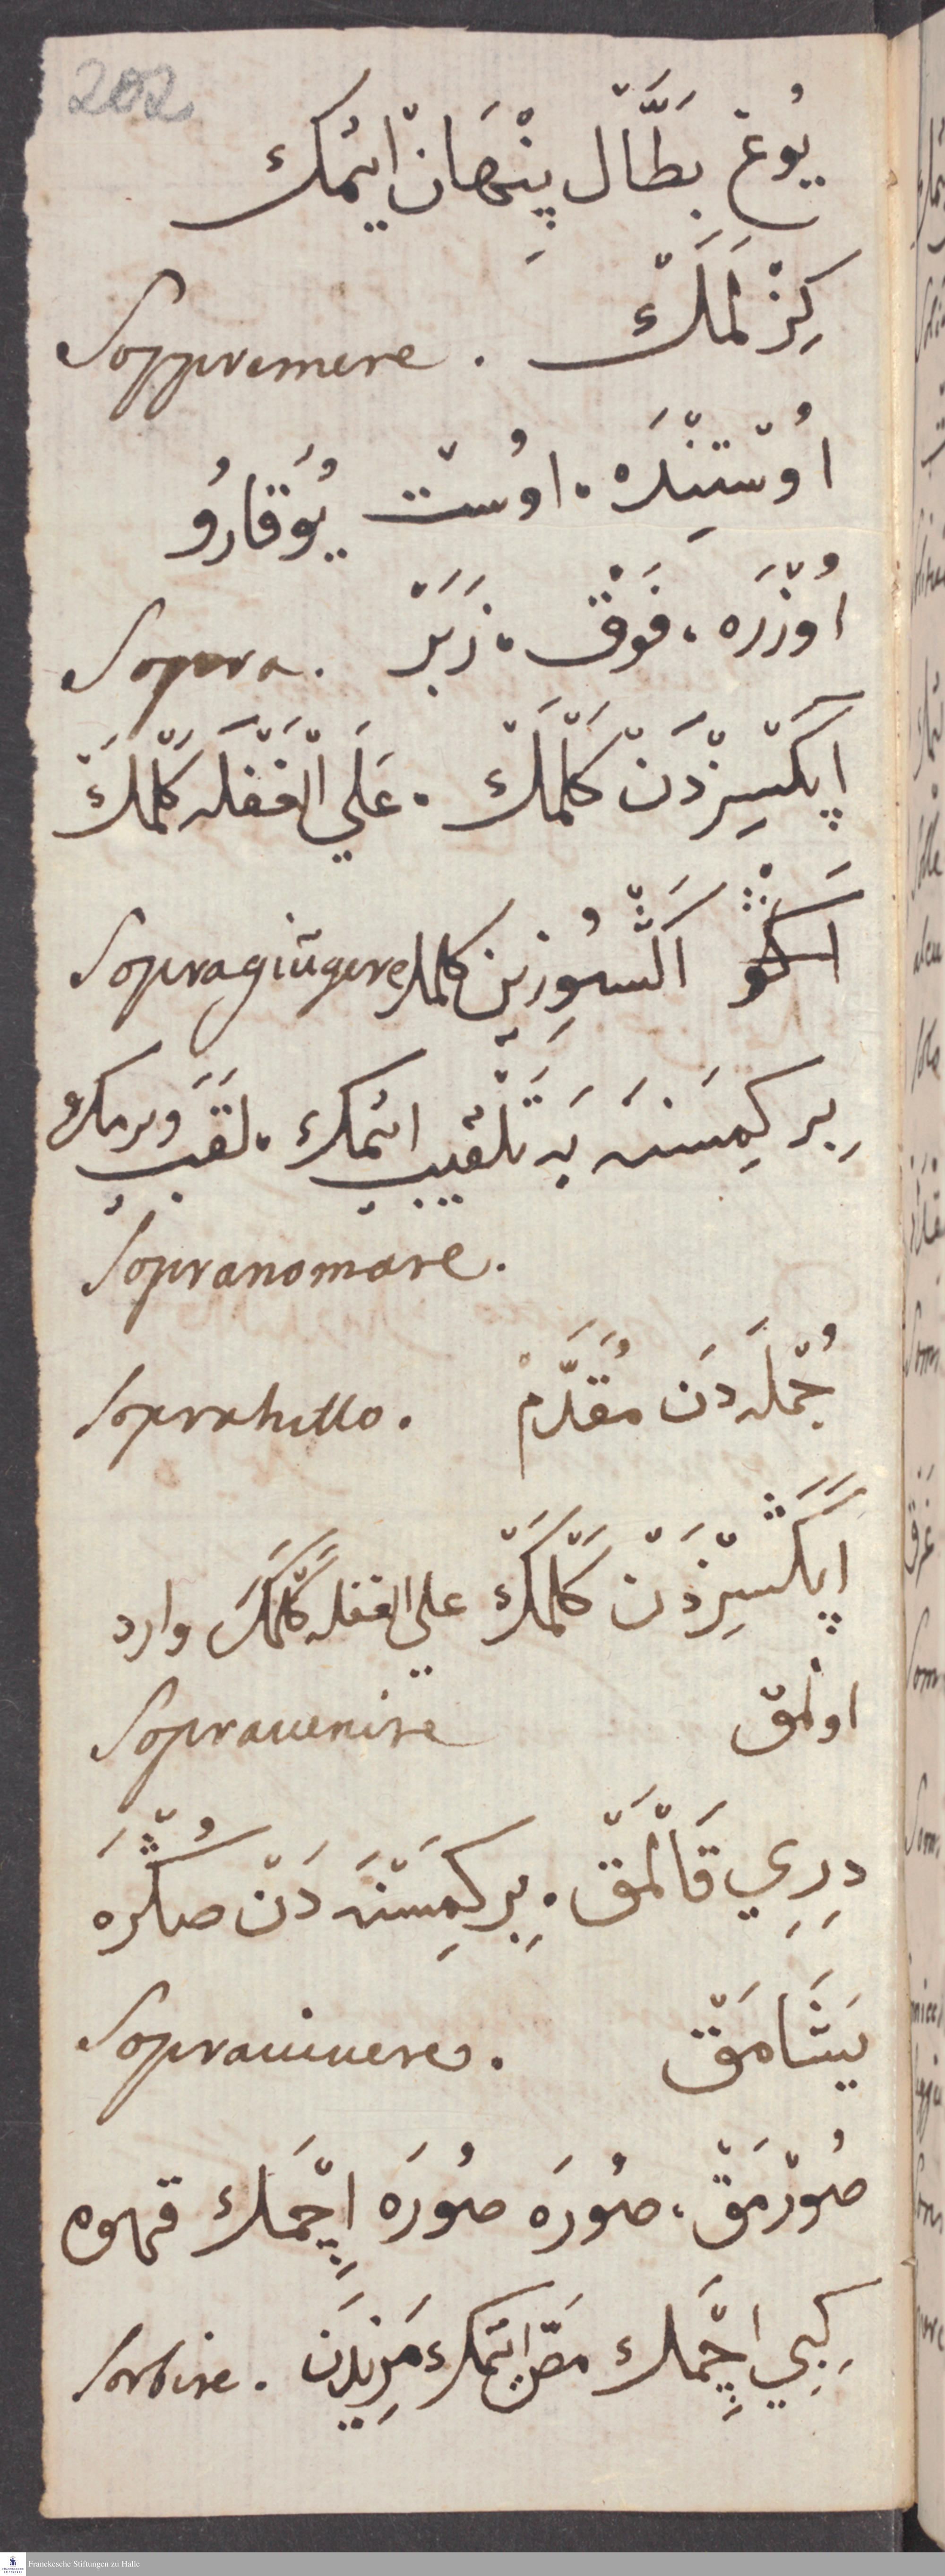 202
يُوغْ بَطَّالْ پِنْهَانْ ايتمك
Soppremere . كِزْلَمَكْ
اُوْسْتِنْدَه ، اوُسْت يُوَقارُو
Sopra . اُوْزْرَه ، فَوْقْ ، زَبَرْ
اپكسِزْدَنْ كَلْمَكْ . عَلَي الْغَفْلَه كَلْمَكْ
Sopragiũgere اڭسُوزِينْ كلمك
بِر كِمَسْنَه يَه تَلْقيب ايتمك . لَقَب ويرمك
Sopranomare .
Sopratutto . جُمْلَه دَن مُقَدَّمْ
اپَڭسِزْدَنْ كَلْمَكْ علي الغفله كَلْمَكْ وارد
Soprauenire اولمق
دِرِي قَالْمَقْ . بِر كِمَسْنَه دَنْ صُڭْرَه
Soprauiuere . يَشَامَقْ
صُورْمَقْ ، صُورَه صُورَه اِچْمَك قهوه
Sorbire . كِبِي اِچْمَك مَصّ ايتمك مَزِيدَن
Franckesche Stiftungen zu Halle